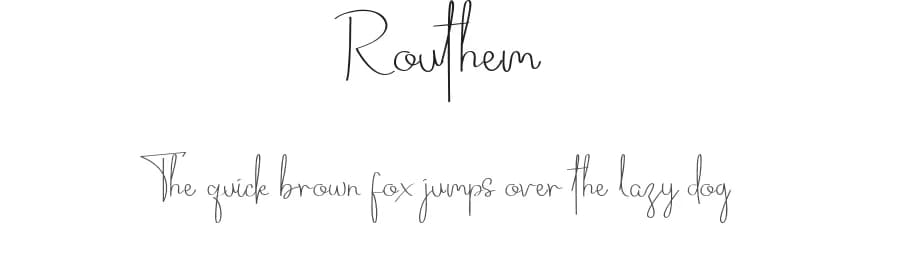 Routhem
The quick brown fox jumps over the lazy dog